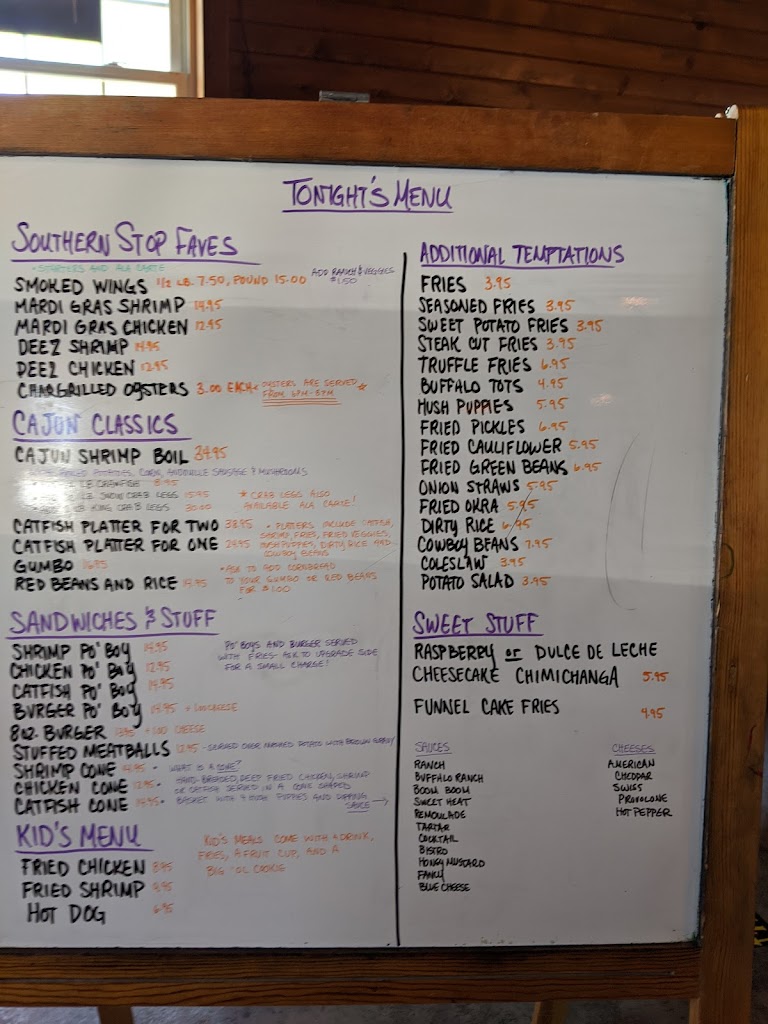 TONIGHT'S MENU
SOUTHERN STOP FAVES
• STARTERS AND ALA CARTE
SMOKED WINGS 1/2 LB. 7.50, POUND 15.00
ADD RANCH & VEGGIES
$1.50
MARDI GRAS SHRIMP 14.95
MARDI GRAS CHICKEN 12.95
DEEZ SHRIMP 14.95
DEEZ CHICKEN 12.95
CHARGRILLED OYSTERS 3.00 EACH
OYSTERS ARE SERVED
FROM 6PM-8PM
CAJUN CLASSICS
CAJUN SHRIMP BOIL 24.95
POTATOES, CORN, ANDOUILLE SAUSAGE & MUSHROOMS
LB CRAWFISH 8.95
LB. SNOW CRAB LEGS 15.95
LB KING CRAB LEGS 30.00
* CRAB LEGS ALSO
AVAILABLE ALA CARTE!
CATFISH PLATTER FOR TWO 38.95
CATFISH PLATTER FOR ONE 24.95
• PLATTERS INCLUDE CATFISH,
SHRIMP, FRIES, FRIED VEGGIES,
HUSH PUPPIES, DIRTY RICE AND
COWBOY BEANS
GUMBO 16.95
RED BEANS AND RICE 14.95
• ASK TO ADD CORNBREAD
TO YOUR GUMBO OR RED BEANS
FOR $1.00
SANDWICHES & STUFF
SHRIMP PO' BOY 14.95
CHICKEN PO' BOY 12.95
CATFISH PO' BOY 14.95
BURGER PO' BOY 14.95 + 1.00 CHEESE
PO' BOYS AND BURGER SERVED
WITH FRIES- ASK TO UPGRADE SIDE
FOR A SMALL CHARGE!
8 OZ. BURGER 13.95 + 1.00 CHEESE
STUFFED MEATBALLS 12.95 - SERVED OVER MASHED POTATO WITH BROWN GRAVY
SHRIMP CONE 14.95 •
CHICKEN CONE 12.95 •
CATFISH CONE 14.95 •
WHAT IS A CONE?
HAND-BREADED, DEEP FRIED CHICKEN, SHRIMP
OR CATFISH SERVED IN A CONE SHAPED
BASKET WITH FRIES, HUSH PUPPIES AND DIPPING
SAUCE →
KID'S MENU
FRIED CHICKEN 8.95
FRIED SHRIMP 9.95
HOT DOG 6.95
KID'S MEALS COME WITH A DRINK,
FRIES, A FRUIT CUP, AND A
BIG 'OL COOKIE
ADDITIONAL TEMPTATIONS
FRIES 3.95
SEASONED FRIES 3.95
SWEET POTATO FRIES 3.95
STEAK CUT FRIES 3.95
TRUFFLE FRIES 6.95
BUFFALO TOTS 4.95
HUSH PUPPIES 5.95
FRIED PICKLES 6.95
FRIED CAULIFLOWER 5.95
FRIED GREEN BEANS 6.95
ONION STRAWS 5.95
FRIED OKRA 5.95
DIRTY RICE 6.95
COWBOY BEANS 7.95
COLESLAW 3.95
POTATO SALAD 3.95
SWEET STUFF
RASPBERRY OR DULCE DE LECHE
CHEESECAKE CHIMICHANGA 5.95
FUNNEL CAKE FRIES 4.95
SAUCES
RANCH
BUFFALO RANCH
BOOM BOOM
SWEET HEAT
REMOULADE
TARTAR
COCKTAIL
BISTRO
HONEY MUSTARD
FANCY
BLUE CHEESE
CHEESES
AMERICAN
CHEDDAR
SWISS
PROVOLONE
HOT PEPPER